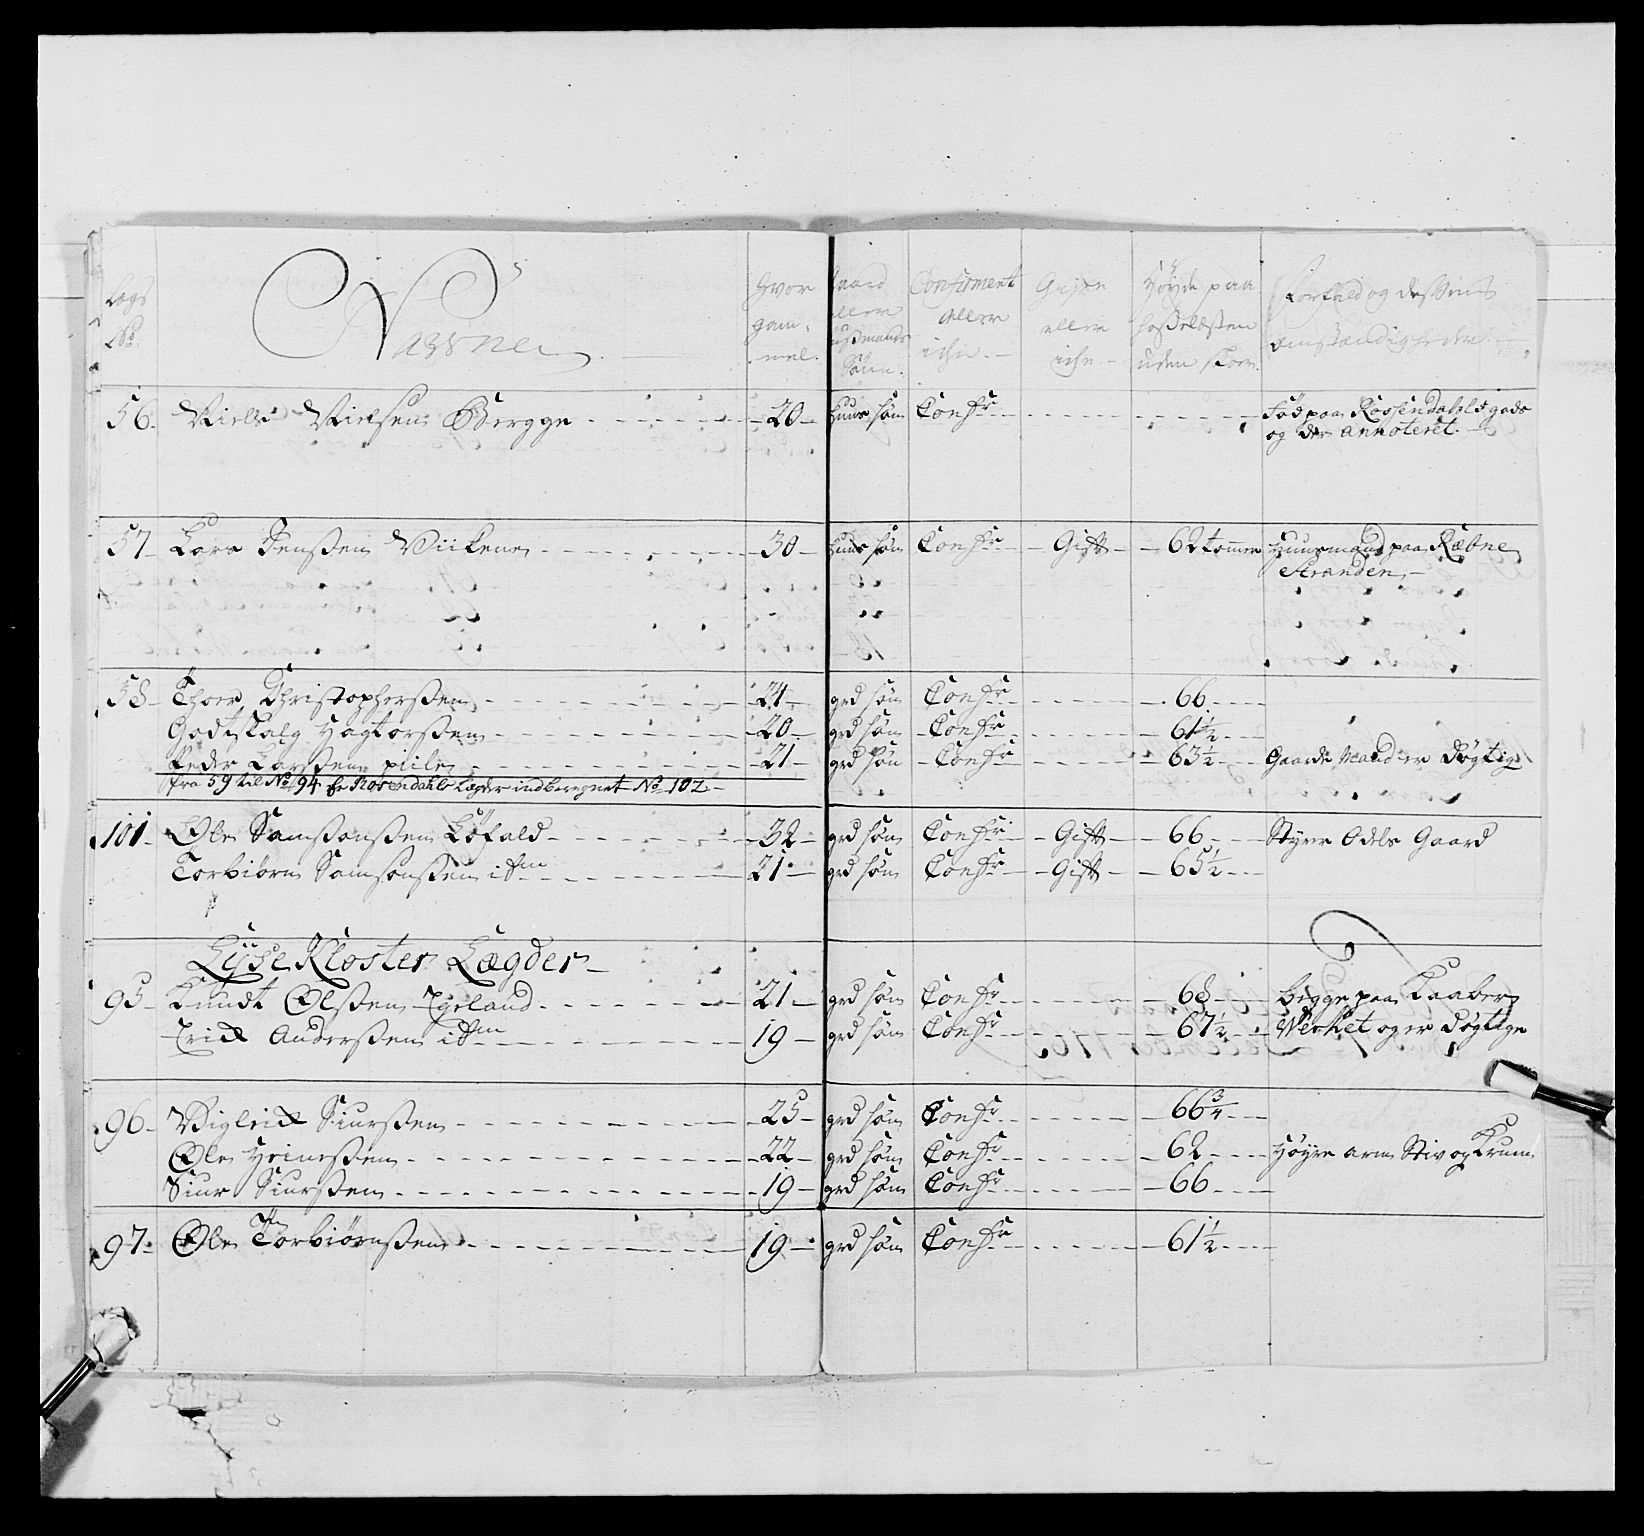 Legs No. Navne Hvor gam- mel. Gaard eller Huusmands Sønn. Confirmert eller iche. Gifte eller iche Høyde paa Hosselæsten uden skoe. Forhold og dessens omstændigheder.
56. Niels Nielsen Bergge 20 huus søn Confr Fød paa Rossendahls gods
og der annoteret.
57 Lars Jenssen Viikene 30 huus søn Confr Gift 62 tommer Huusmand paa Ræbne
Stranden
58 Thoer Christophersen 24 grd søn Confr 66
Godtskalg Hagtorssen 20 grd søn Confr 61½
Peder Larssen piile 21 grd søn Confr 63½ Gaards Mand er døgtig
fra 59 til No 94 er Rosendahls Lægder indberegnet No 102
101 Ole Samsonssen Løfald 32 grd søn Confr Gift 66 Styrer Odels Gaard
Torbiørn Samsonssen itm 21 grd søn Confr Gift 65½
Lyse Kloster Lægder
95 Knudt Olssen Egeland 21 grd søn Confr 68 begge paa Kaaber
Erik Anderssen itm 19 grd søn Confr 67½ Verket og er døgtige
96 Viglrik Siurssen 25 grd søn Confr 66¾
Ole Heinrssen 22 grd søn Confr 62 Høyre arm Stiv og Krum
Siur Siurssen 19 grd søn Confr 66
97 Ole Torbiørnssen 19 grd søn Confr 61½